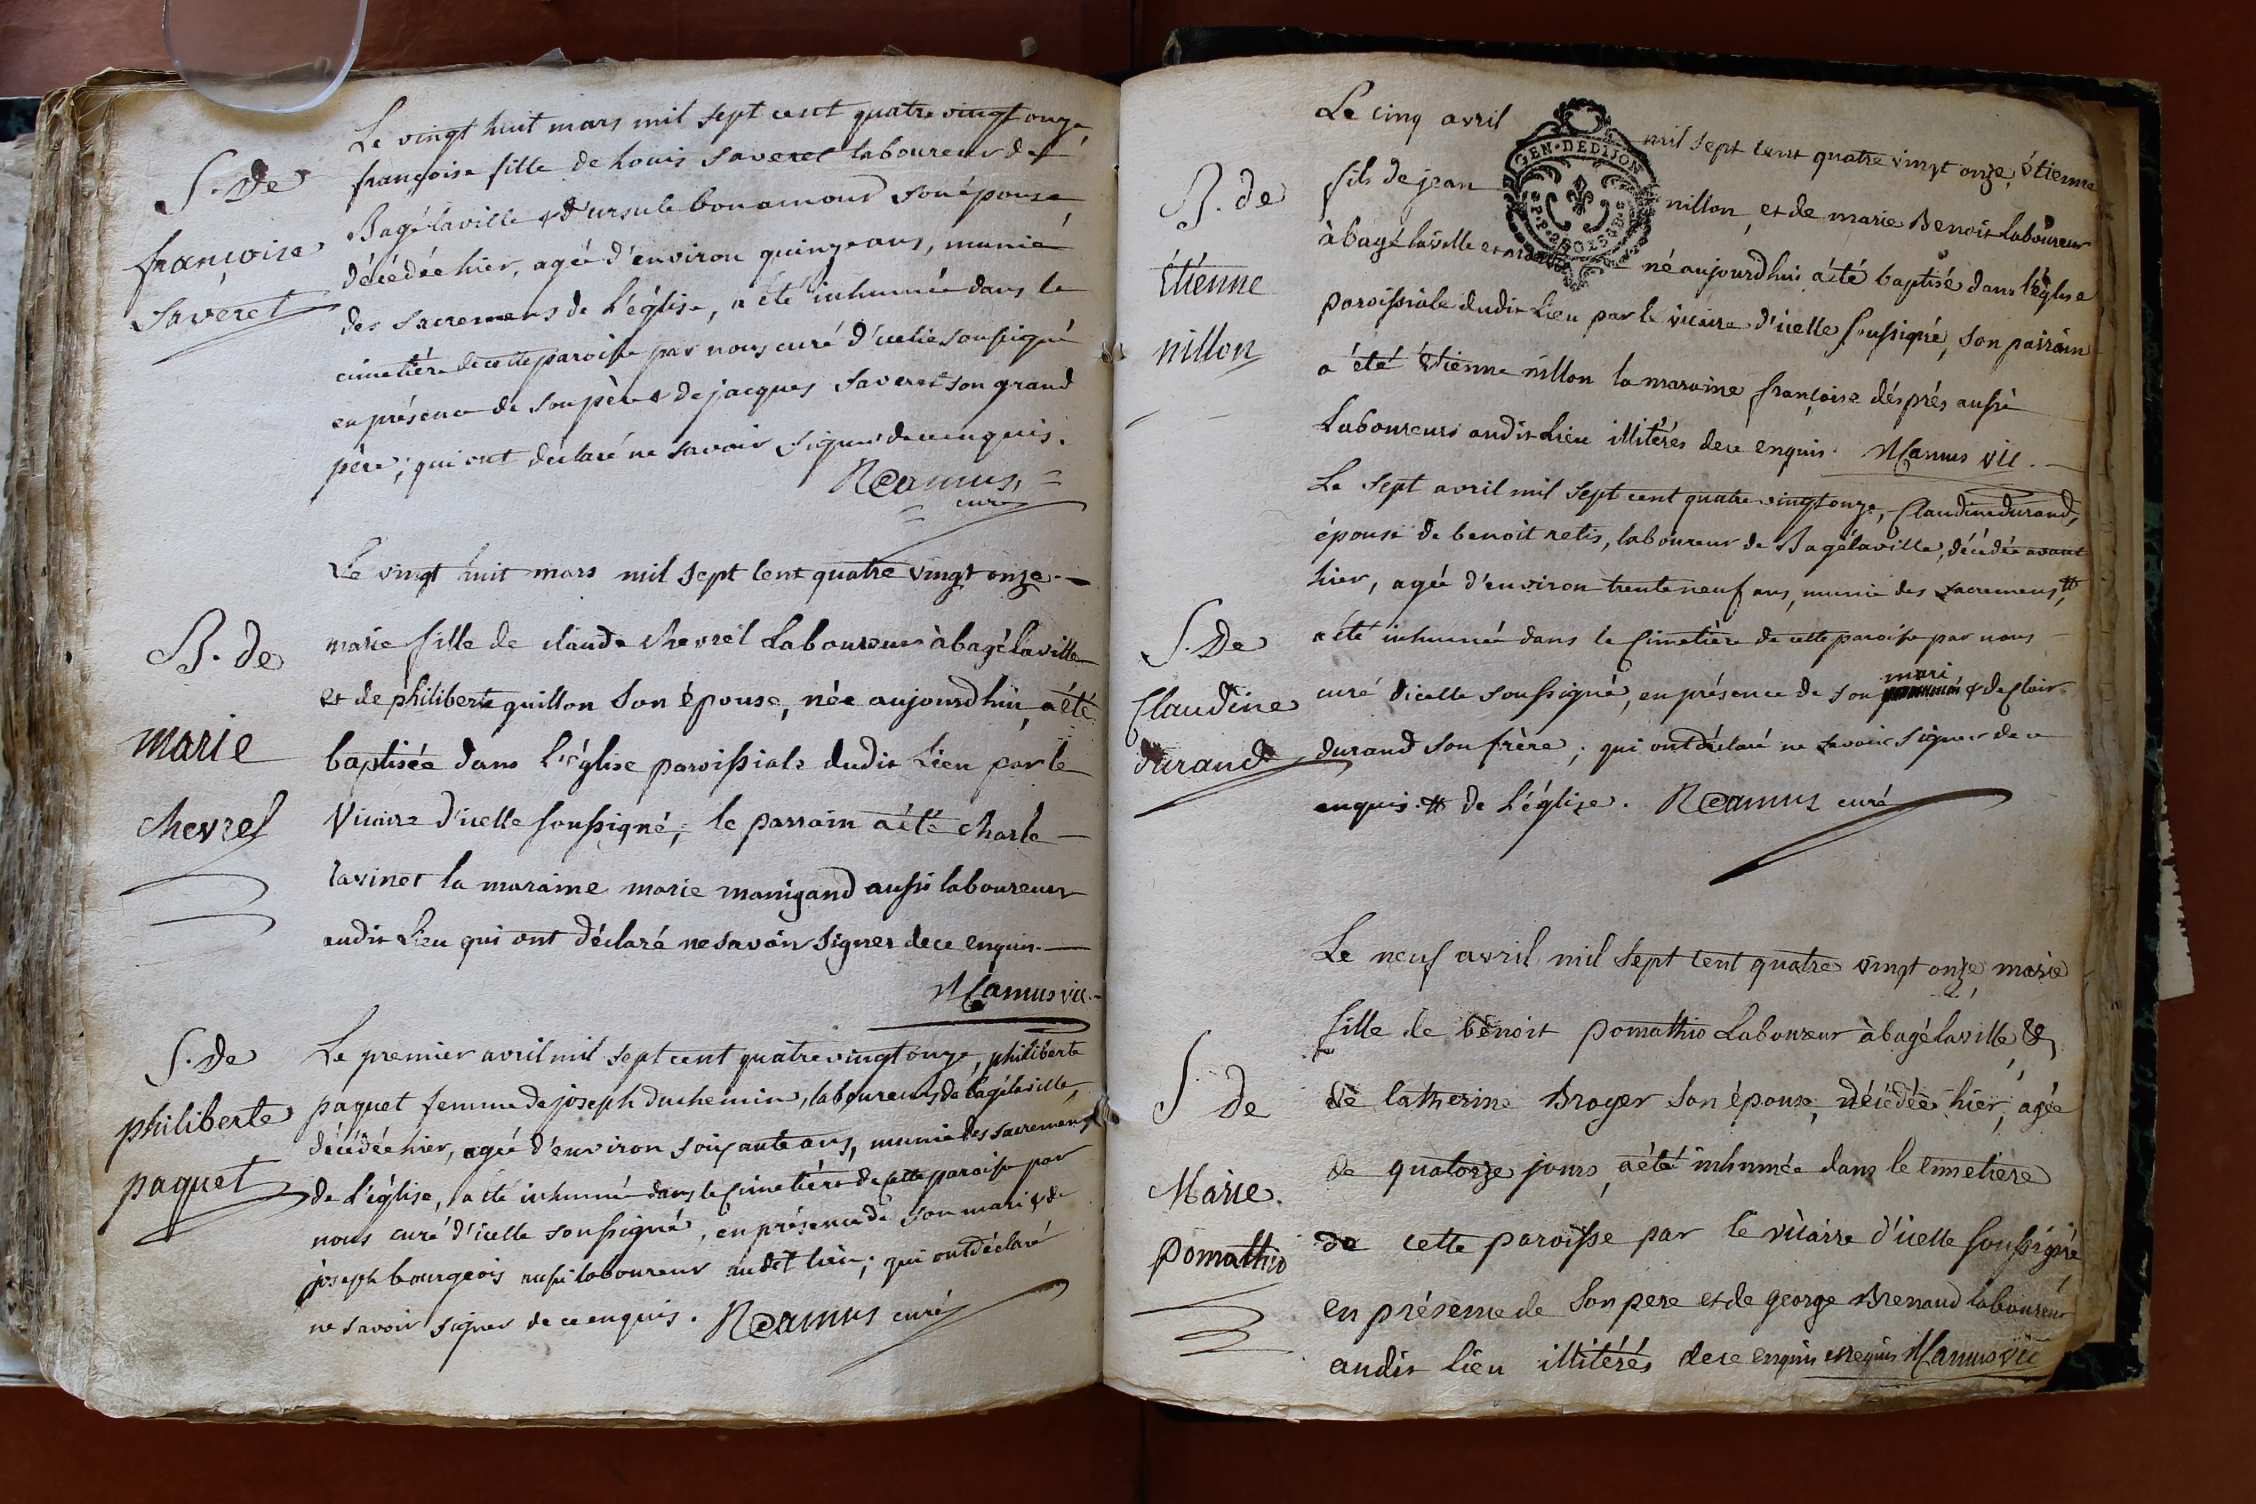 Le vingt huit mars mil sept cent quatre vingt onze,
S. de
françoise
saveret
françoise fille de Louis saveret laboureur de
Bagélaville & d'ursule bonamour son épouse,
décédée hier, agée d'environ quinze ans, munie
des sacremens de l'église, a été inhumée dans le
cimetière de cette paroisse par nous curé d'icelle soussigné
en présence de son père & de jacques saveret son grand
père; qui ont declaré ne savoir signer de ce enquis.
Camus,
curé
Le vingt huit mars mil sept cent quatre vingt onze.
B. de
marie
chevrel
marie fille de claude chevrel Laboureur à bagé laville
et de philiberte guillon Son épouse, née aujourdhui, a été
baptisée dans l'église paroissiale dudit Lieu par le
Vicaire d'icelle soussigné; le parrain a été charle
ravinet la maraine marie manigand aussi laboureurs
audit Lieu qui ont déclaré ne savoir signer de ce enquis.
Camus vic.
S. de
philiberte
paquet
Le premier avril mil sept cent quatre vingt onze, philiberte
paquet femme de joseph duchemin, laboureurs de bagélaville,
décédée hier, agée d'environ soixante ans, munie des sacremens
de l'église, a été inhumée dans le cimetière de cette paroisse par
nous curé d'icelle soussigné, en présence de son mari & de
joseph bourgeois aussi laboureur audit lieu; qui ont déclaré
ne savoir signer de ce enquis. Camus curé
GEN. DE DIJON
Le cinq avril mil sept cent quatre vingt onze, étienne
B. de
Etienne
nillon
fils de jean nillon, et de marie Benoit Laboureur
à bagé laville né aujourdhui a été baptisé dans l'église
paroissiale dudit Lieu par le vicaire d'icelle soussigné, son parrain
a été étienne nillon la maraine françoise désprés aussi
Laboureurs audit Lieu illitérés de ce enquis. Camus vic.
S. de
Claudine
durand
Le sept avril mil sept cent quatre vingt onze, Claudine durand,
épouse de benoit retis, laboureur de Bagélaville, décédée avant
hier, agée d'environ trente neuf ans, munie des sacremens #
a été inhumée dans le cimetière de cette paroisse par nous
curé d'icelle soussigné, en présence de son mari & de clair
durand son frère; qui ont déclaré ne savoir signer de ce
enquis. # de l'église. Camus curé
Le neuf avril mil sept cent quatre vingt onze, marie
S. de
Marie
pomathio
fille de bénoit pomathio Laboureur à bagé laville &
de catherine Broyer son épouse, décédée hier, agée
de quatorze jours, a été inhumée dans le cimetière
de cette paroisse par le vicaire d'icelle soussigné
en présence de son pere et de george Brenaud laboureur
audit lieu illitérés de ce enquis et requis Camus vic